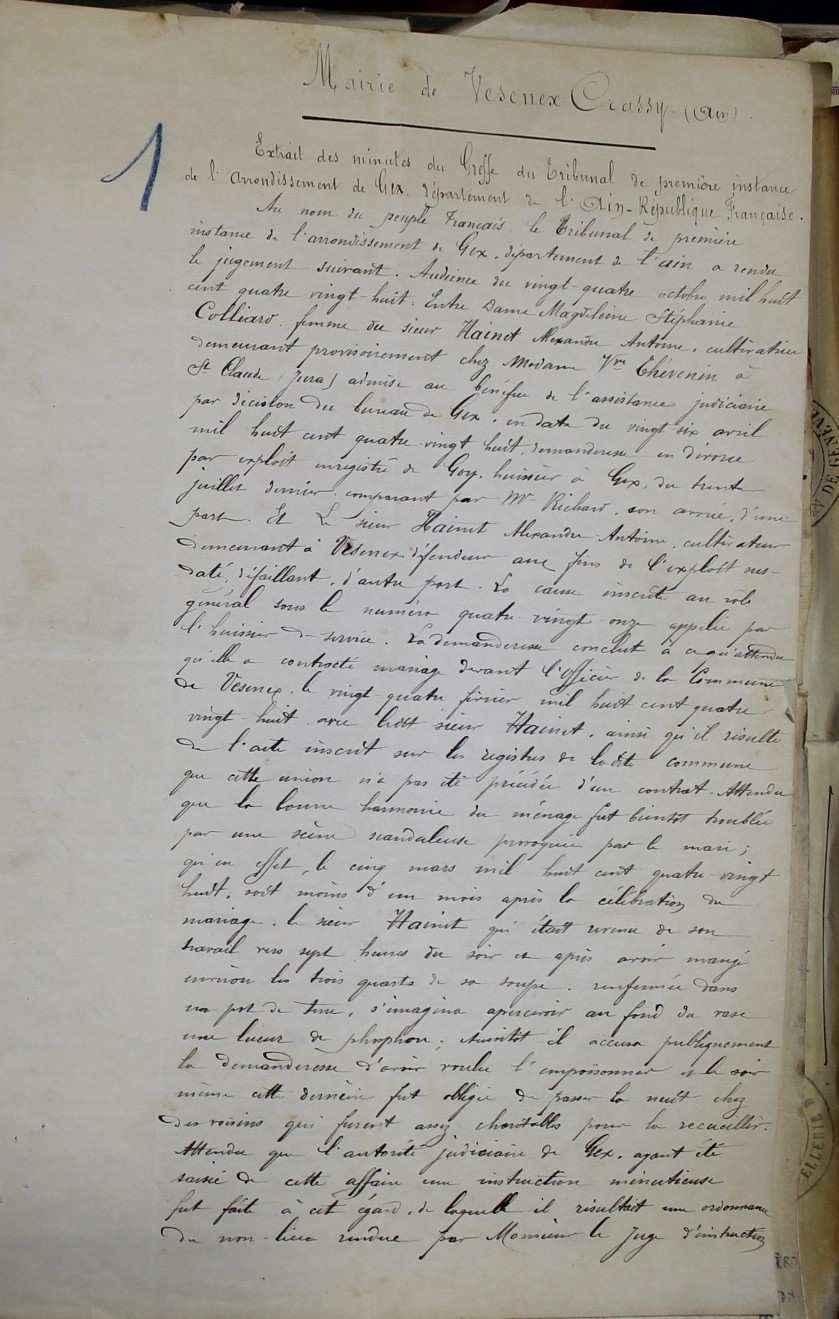 Mairie de Vesenex Crassy - (Ain)
1
Extrait des minutes du Greffe du Tribunal de première instance
de l'Arrondissement de Gex, département de l'Ain - République Française.
Au nom du peuple Français, le Tribunal de première
instance de l'arrondissement de Gex, département de l'ain a rendu
le jugement suivant. Audience du vingt-quatre octobre mil huit
cent quatre vingt-huit. Entre Dame Magdeleine Stéphanie
Colliard, femme du sieur Hainet Alexandre Antoine, cultivatrice
demeurant provisoirement chez Madame Vve Thévenin à
St Claude (Jura) admise au bénéfice de l'assistance judiciaire
par décision du bureau de Gex, en date du vingt six avril
mil huit cent quatre vingt huit, demanderesse en divorce
par exploit enregistré de Goy, huissier à Gex, du trente
juillet dernier, comparant par Mr Richard, son avoué, d'une
part. Et Le sieur Hainet Alexandre Antoine, cultivateur
demeurant à Vesenex défendeur aux fins de l'exploit sus-
daté, défaillant, d'autre part. La cause inscrite au rôle
général sous le numéro quatre-vingt onze appelée par
l'huissier de service. La demanderesse conclut à ce qu'attendu
qu'elle a contracté mariage devant l'officier de la Commune
de Vesenex, le vingt quatre février mil huit cent quatre
vingt-huit avec ledit sieur Hainet, ainsi qu'il résulte
de l'acte inscrit sur les registres de ladite commune
que cette union n'a pas été précédée d'un contrat. Attendu
que la bonne harmonie du ménage fut bientôt troublée
par une scène scandaleuse provoquée par le mari;
qu'en effet, le cinq mars mil huit cent quatre-vingt
huit, soit moins d'un mois après la célébration du
mariage, le sieur Hainet qui était revenu de son
travail vers sept heures du soir et après avoir mangé
environ les trois quarts de sa soupe, renfermée dans
un pot de terre, s'imagina apercevoir au fond du vase
une lueur de phosphore; Aussitôt il accusa publiquement
la demanderesse d'avoir voulu l'empoisonner et le soir
même cette dernière fut obligée de passer la nuit chez
des voisins qui furent assez charitables pour la recueillir.
Attendu que l'autorité judiciaire de Gex, ayant été
saisie de cette affaire une instruction minutieuse
fut faite à cet égard, de laquelle il résultait une ordonnance
de non-lieu rendue par Monsieur le Juge d'instruction
N DE GENÈVE
ELLERIE